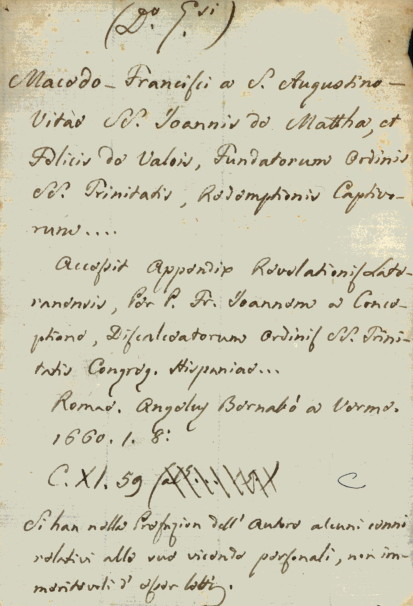 (Do. G.si)
Macedo - Francisci a S. Augustino -
Vitae SS. Joannis de Mattha, et
Felicis de Valois, Fundatorum Ordinis
SS. Trinitatis, Redemptionis Captivo-
rum....
Accessit Appendix Revelationis Late-
ranensis, Per P. Fr. Joannem a Conce-
ptione, Discalceatorum Ordinis SS. Trini-
tatis Congreg. Hispaniae...
Romae. Angelus Bernabò a Verme.
1660. 1. 8:
C. XI. 59
C
Si han nella Prefazion dell' Autore alcuni cenni
relativi alle sue vicende personali, non im-
meritevoli d' esser letti.